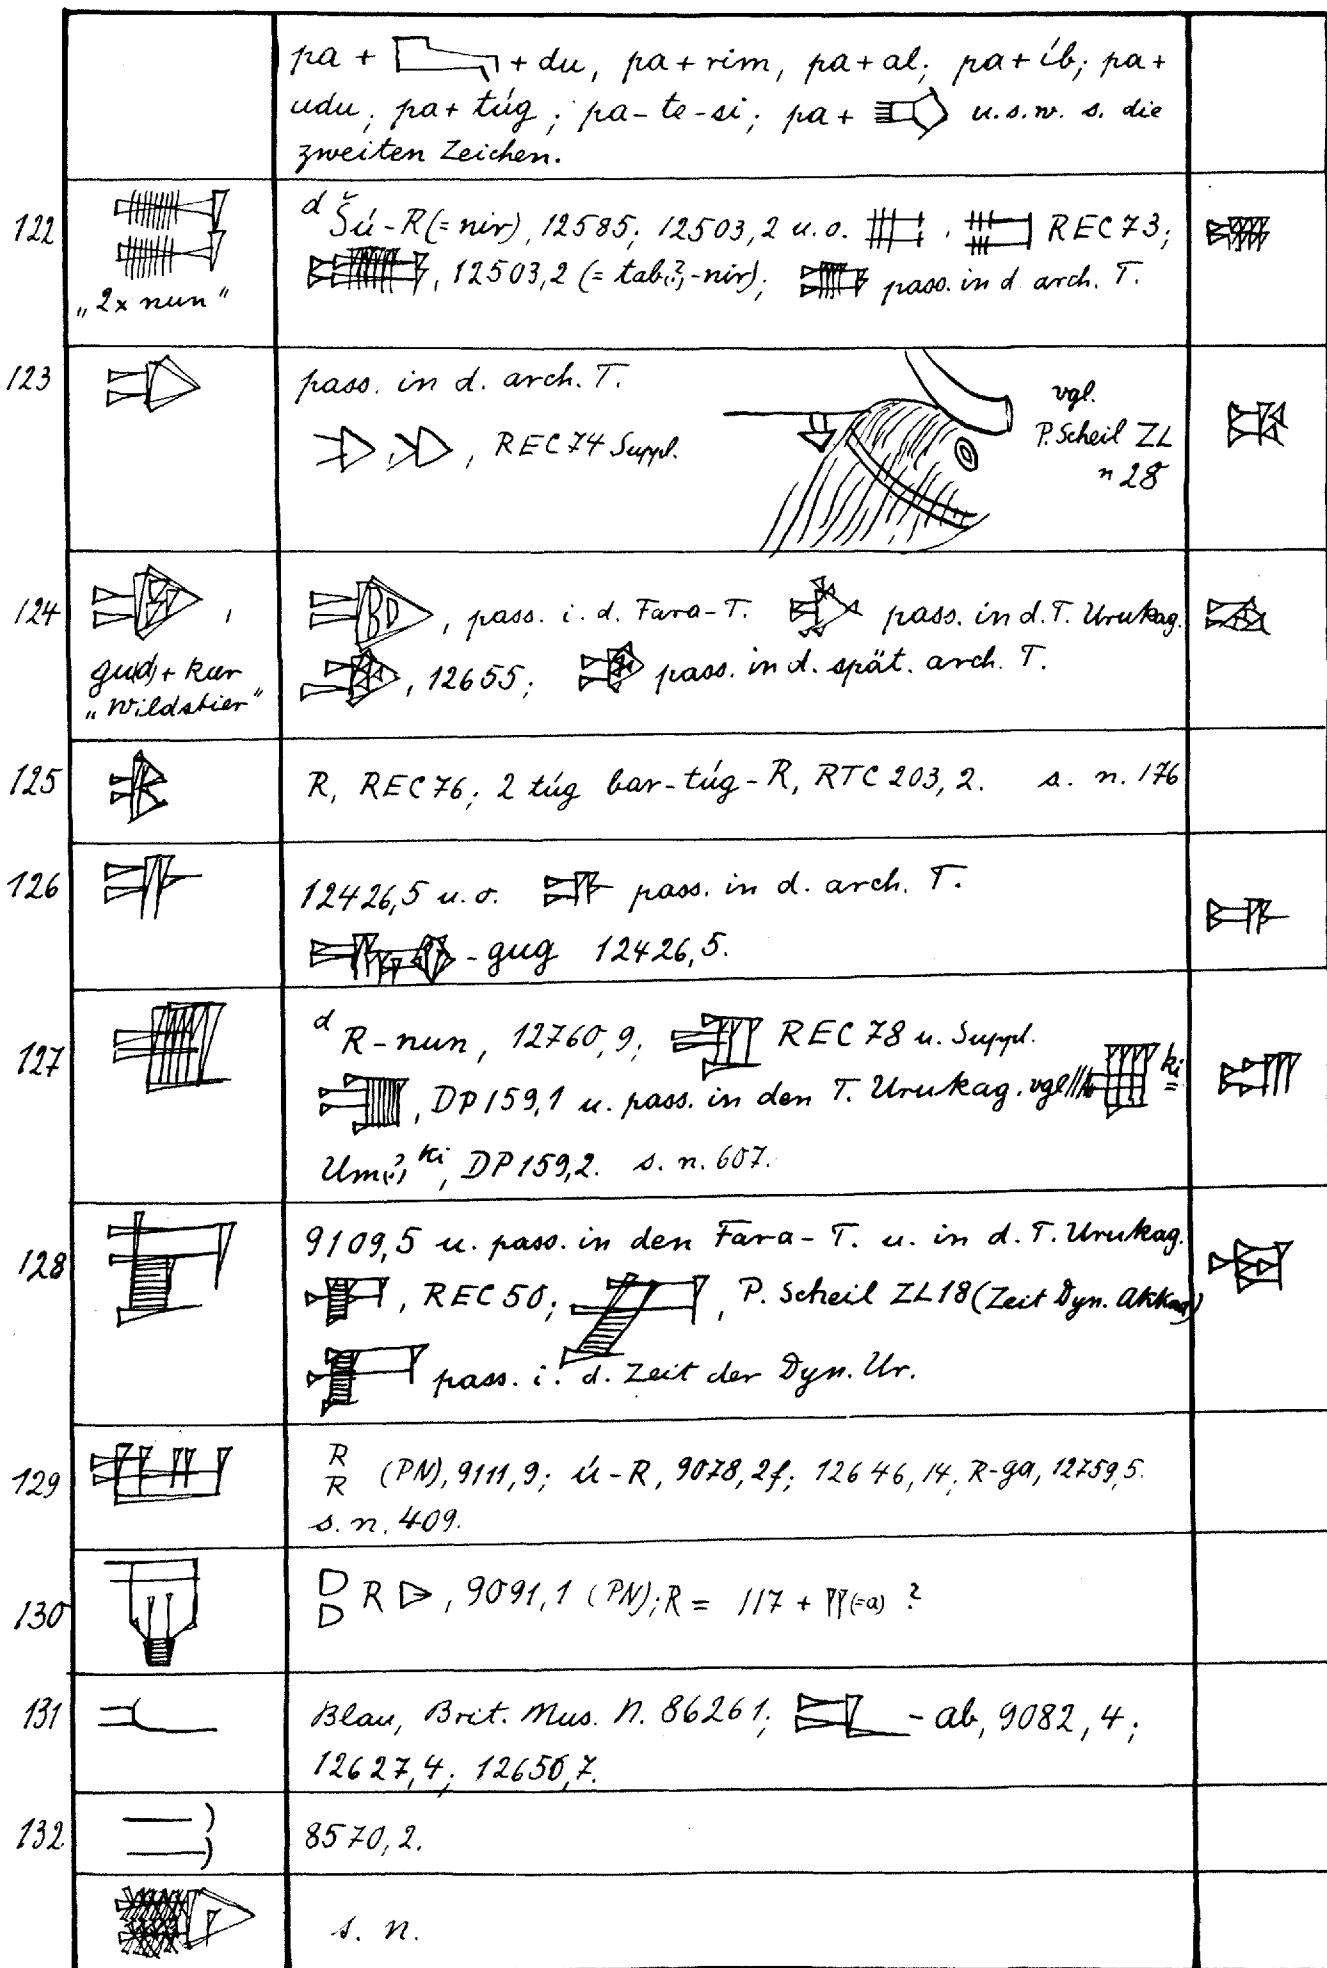 pa + + du, pa + rim, pa + al; pa + íb; pa +
udu; pa + túg; pa-te-si; pa + u.s.w. s. die
zweiten Zeichen.
122
ᵈ Šú-R (= nir), 12585; 12503,2 u. o. , REC 73;
, 12503,2 (= tab(?)-nir); pass. in d. arch. T.
„2x nun“
123
pass. in d. arch. T.
, REC 74 Suppl.
vgl.
P. Scheil ZL
n 28
124
, , pass. i. d. Fara-T. pass. in d. T. Urukag.
gu(d) + kur , 12655; pass. in d. spät. arch. T.
„Wildstier“
125 R, REC 76; 2 túg bar-túg-R, RTC 203,2. s. n. 176
126 12426,5 u. o. pass. in d. arch. T.
-gug 12426,5.
127 ᵈ R-nun, 12760,9; REC 78 u. Suppl.
, DP 159,1 u. pass. in den T. Urukag. vgl. ki =
Um(?) ki, DP 159,2. s. n. 607.
128 9109,5 u. pass. in den Fara-T. u. in d. T. Urukag.
, REC 50; , P. Scheil ZL 18 (Zeit Dyn. Akkad)
pass. i. d. Zeit der Dyn. Ur.
129 R
R (PN), 9111,9; ú-R, 9078,2f; 12646,14; R-ga, 12759,5.
s. n. 409.
130 D
D R , 9091,1 (PN); R = 117 + (=a) ?
131 Blau, Brit. Mus. N. 86261; -ab, 9082,4;
12627,4; 12650,7.
132. 8570,2.
s. n.